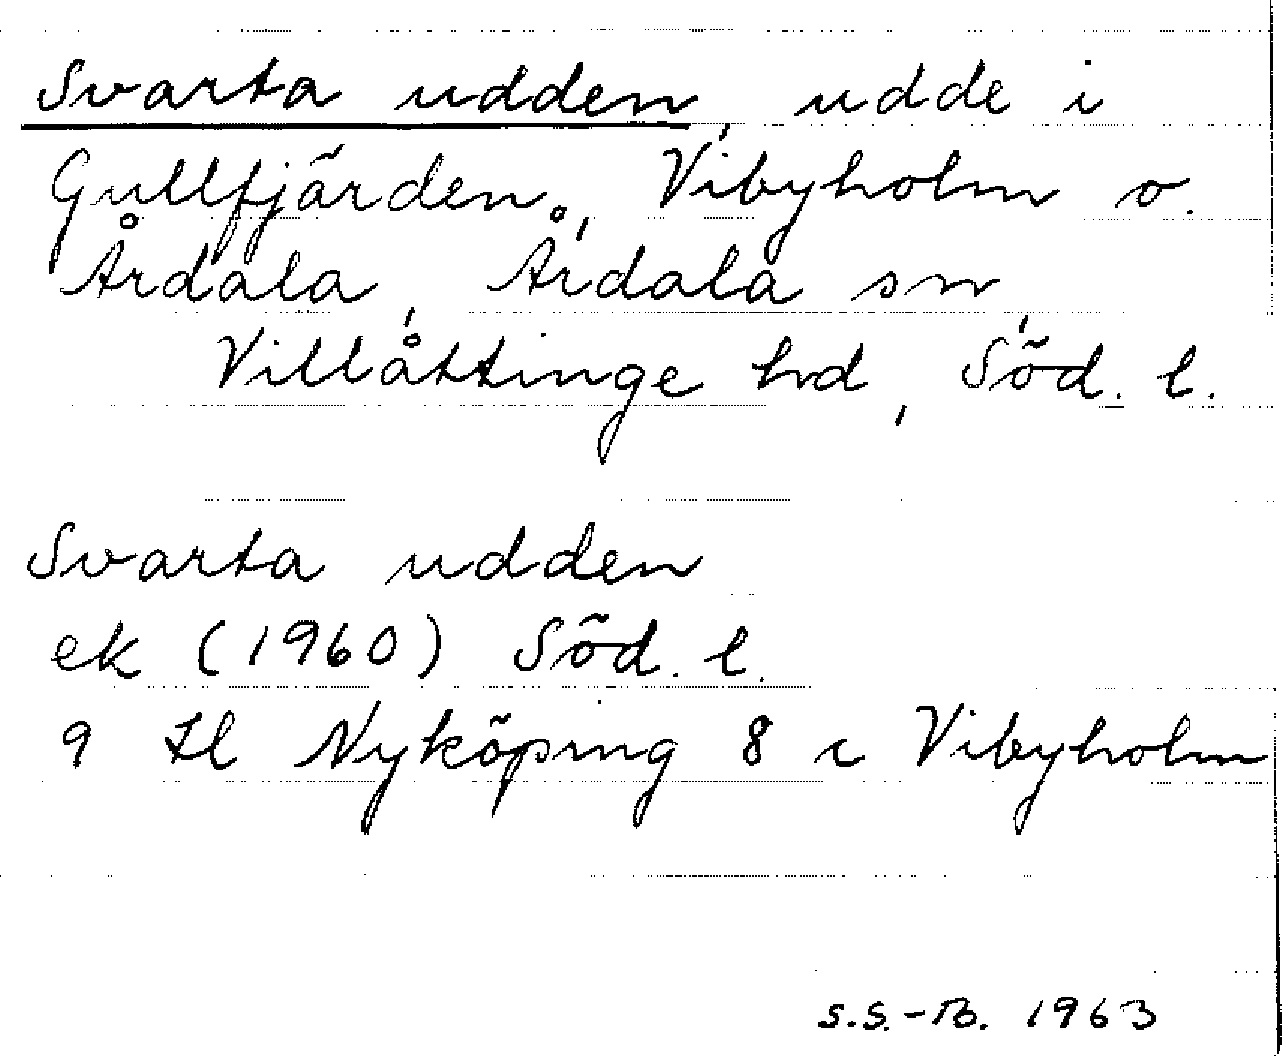 Svarta udden, udde i
Gullfjärden, Vibyholm o.
Årdala, Årdala sn,
Villåttinge hd, Söd. l.
Svarta udden
ek (1960) Söd. l.
9 tl Nyköping 8 c Vibyholm
S.S.-B. 1963